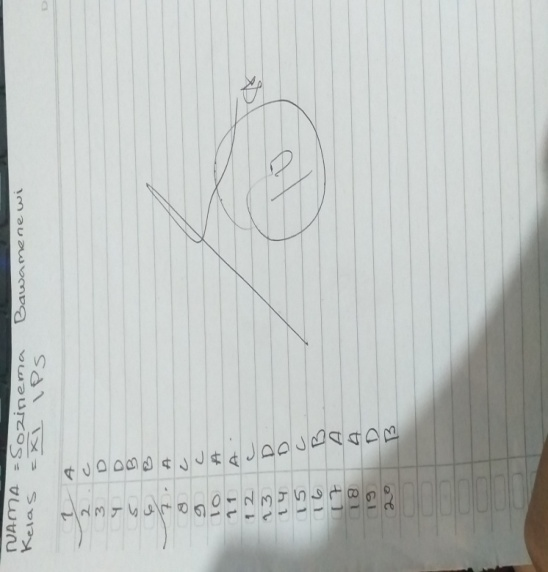 NAMA = Sozinema Bawamenewi
Kelas = XI IPS
1. A
2. C
3 D
4 D
5 B
6 B
7. A
8 C
9 C
10 A
11 A.
12 C
13 D
14 D
15 C
16 B
17 A
18 A
19 D
20 B